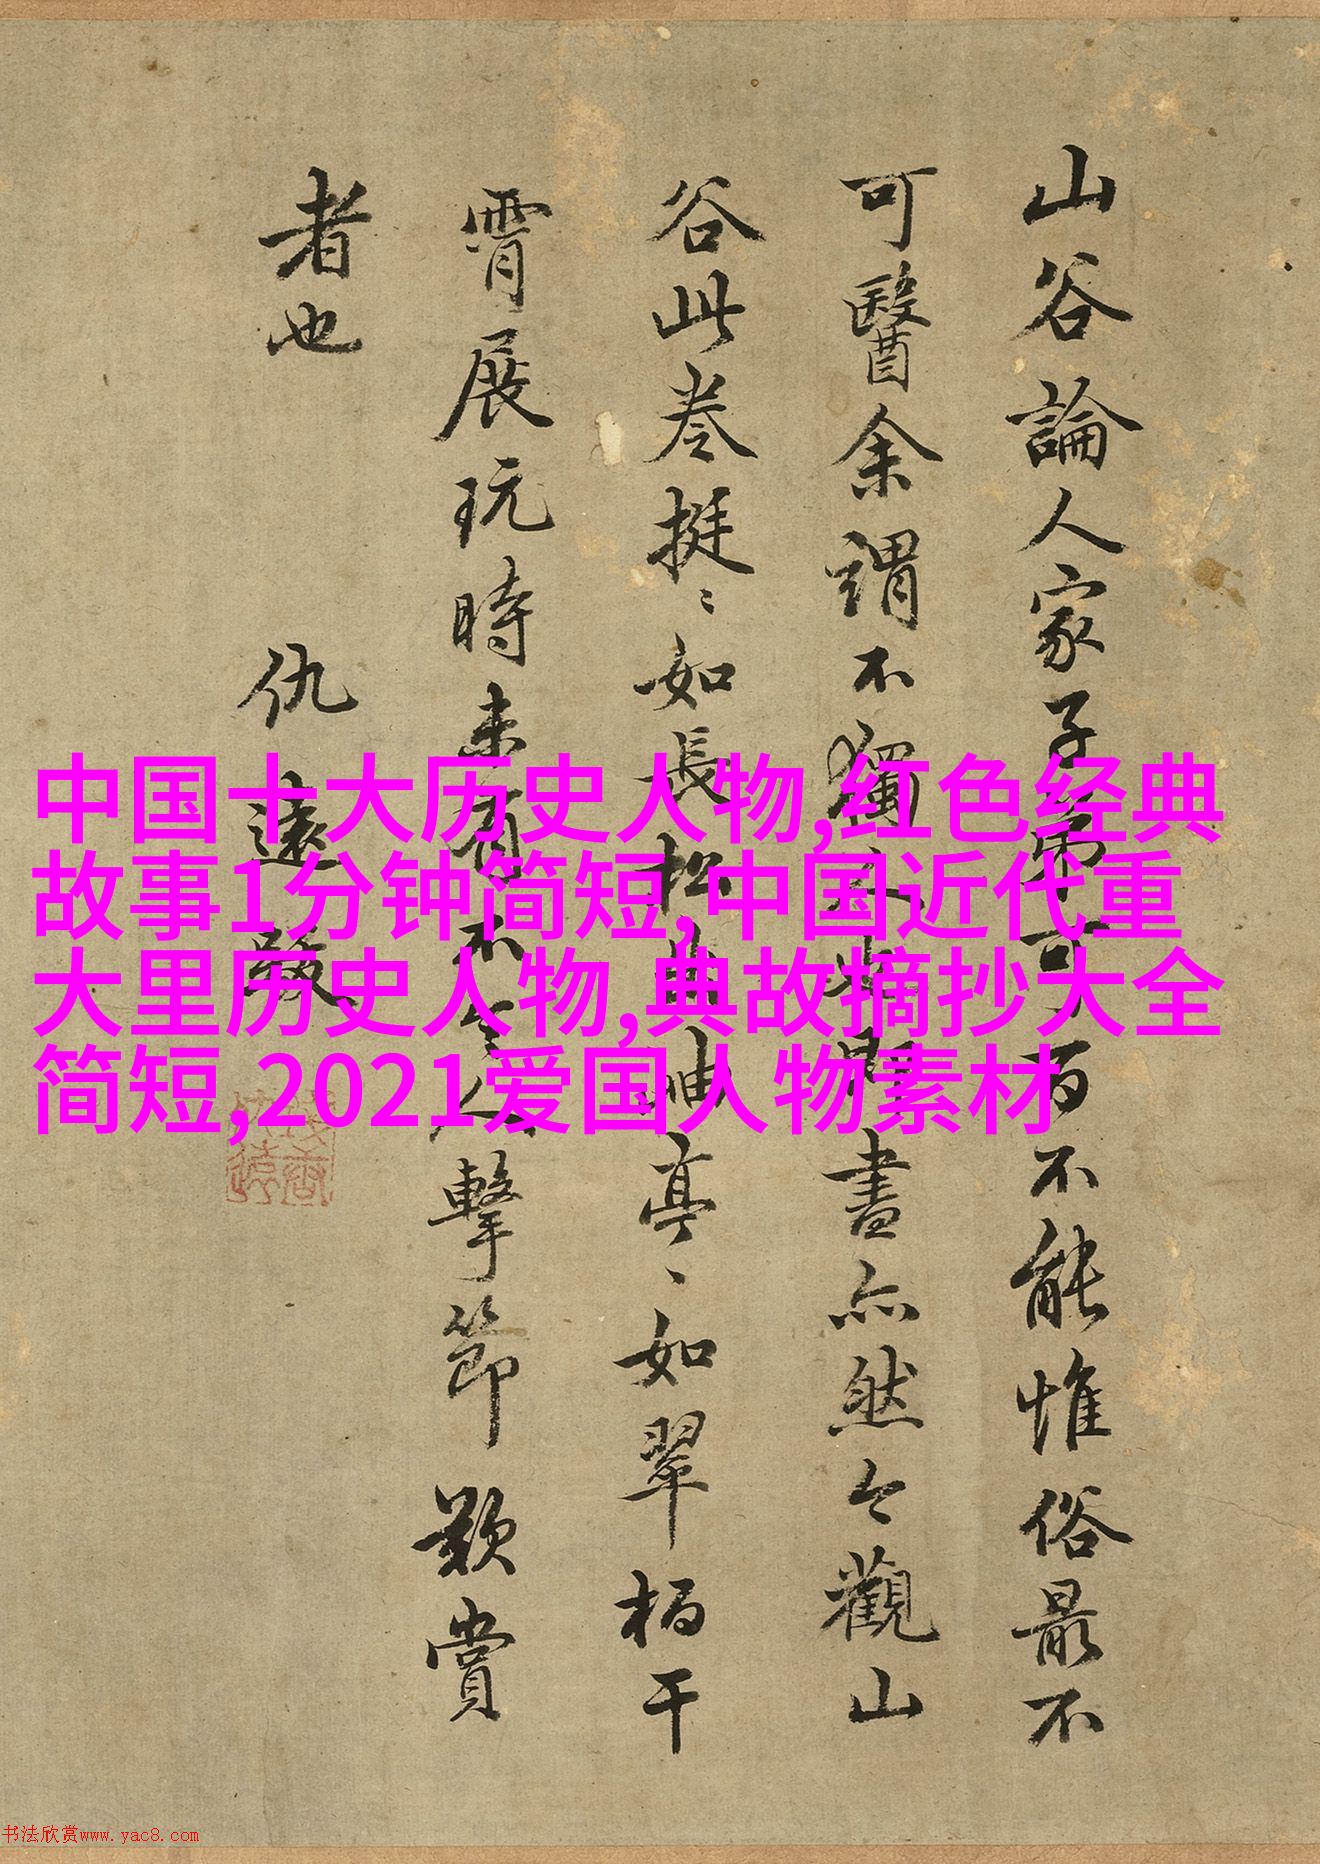 山谷論人家子弟可百不能惟俗最不
可醫余謂不獨人畫亦然今觀山
谷此卷挺〻如長松曲岫亭〻如翠柏干
霄展玩時未有不令人擊節歎賞
者也 仇遠跋
中国十大历史人物,红色经典
故事1分钟简短,中国近代重
大里历史人物,典故摘抄大全
简短,2021爱国人物素材
书法欣赏www.yac8.com